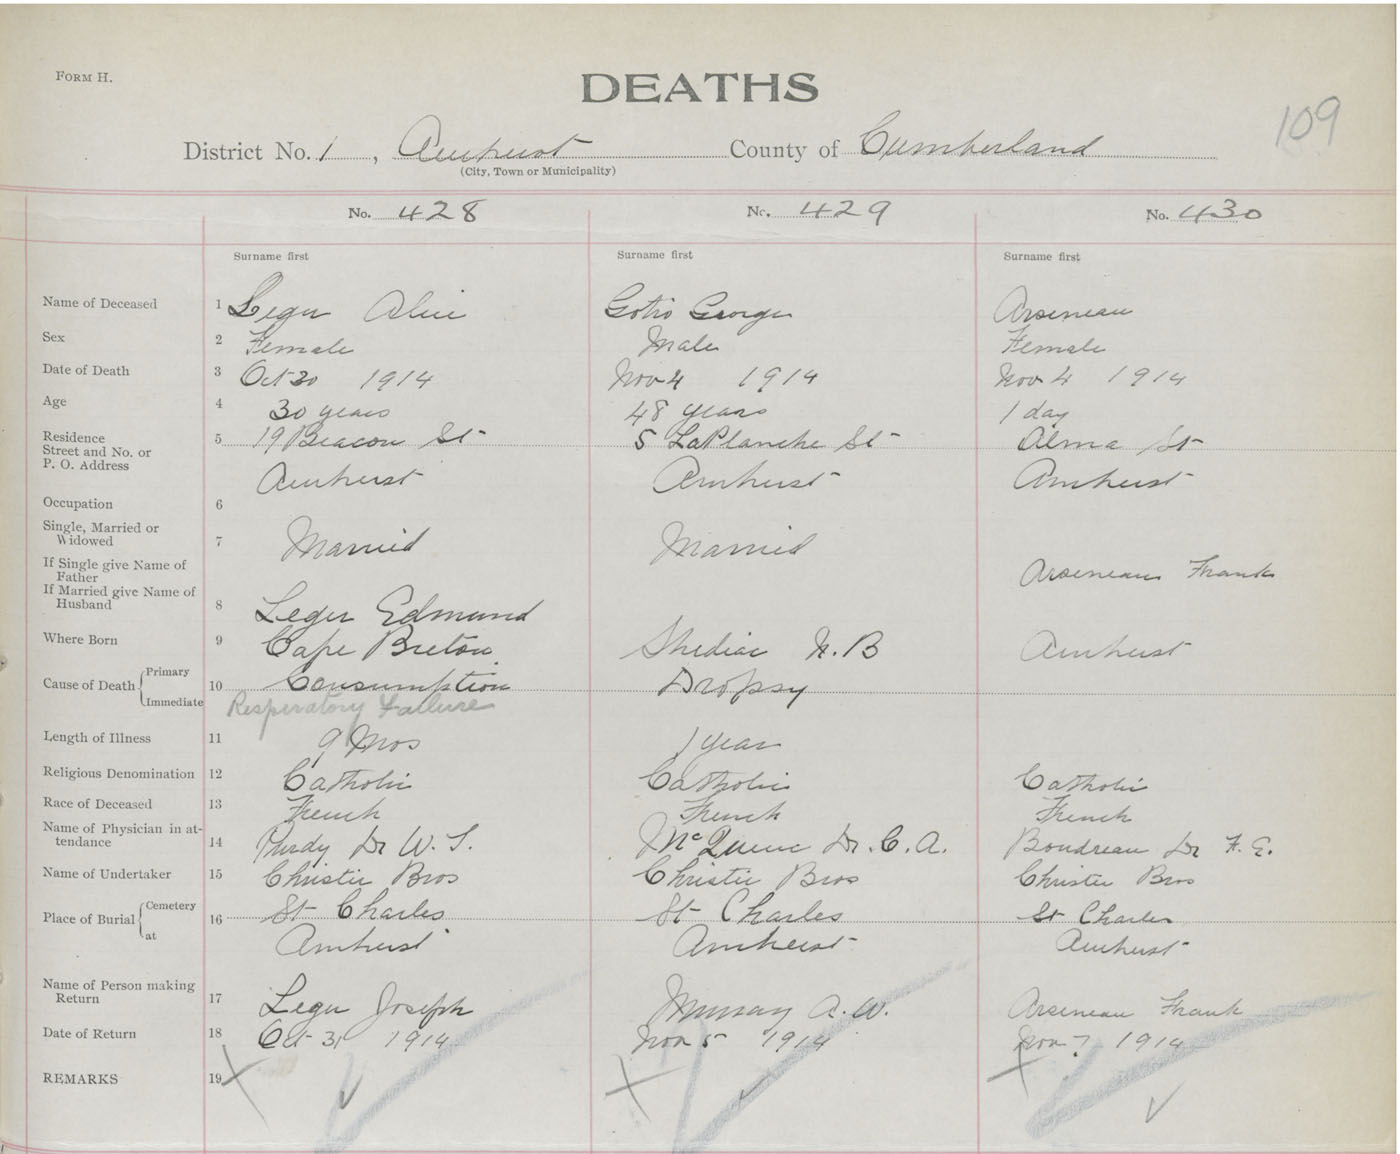 FORM H.
DEATHS
109
District No. 1, Amherst County of Cumberland
(City, Town or Municipality)
No. 428 No. 429 No. 430
Surname first Surname first Surname first
Name of Deceased 1 Leger Alice Gotro George Arseneau
Sex 2 Female Male Female
Date of Death 3 Oct 30 1914 Nov 4 1914 Nov 4 1914
Age 4 30 years 48 years 1 day
Residence
Street and No. or 5 19 Beacon St 5 LaPlanche St Alma St
P. O. Address
Amherst Amherst Amherst
Occupation 6
Single, Married or
Widowed 7 Married Married
If Single give Name of
Father Arseneau Frank
If Married give Name of
Husband 8 Leger Edmund
Where Born 9 Cape Breton Shediac N.B Amherst
Primary
Cause of Death 10 Consumption Dropsy
Immediate Respiratory Failure
Length of Illness 11 9 Mos 1 year
Religious Denomination 12 Catholic Catholic Catholic
Race of Deceased 13 French French French
Name of Physician in at-
tendance 14 Purdy Dr W. T. McQueen Dr. C. A. Boudreau Dr F. E.
Name of Undertaker 15 Christie Bros Christie Bros Christie Bros
Cemetery
Place of Burial 16 St Charles St Charles St Charles
at Amherst Amherst Amherst
Name of Person making
Return 17 Leger Joseph Murray A. W. Arseneau Frank
Date of Return 18 Oct 31 1914 Nov 5 1914 Nov 7 1914
REMARKS 19